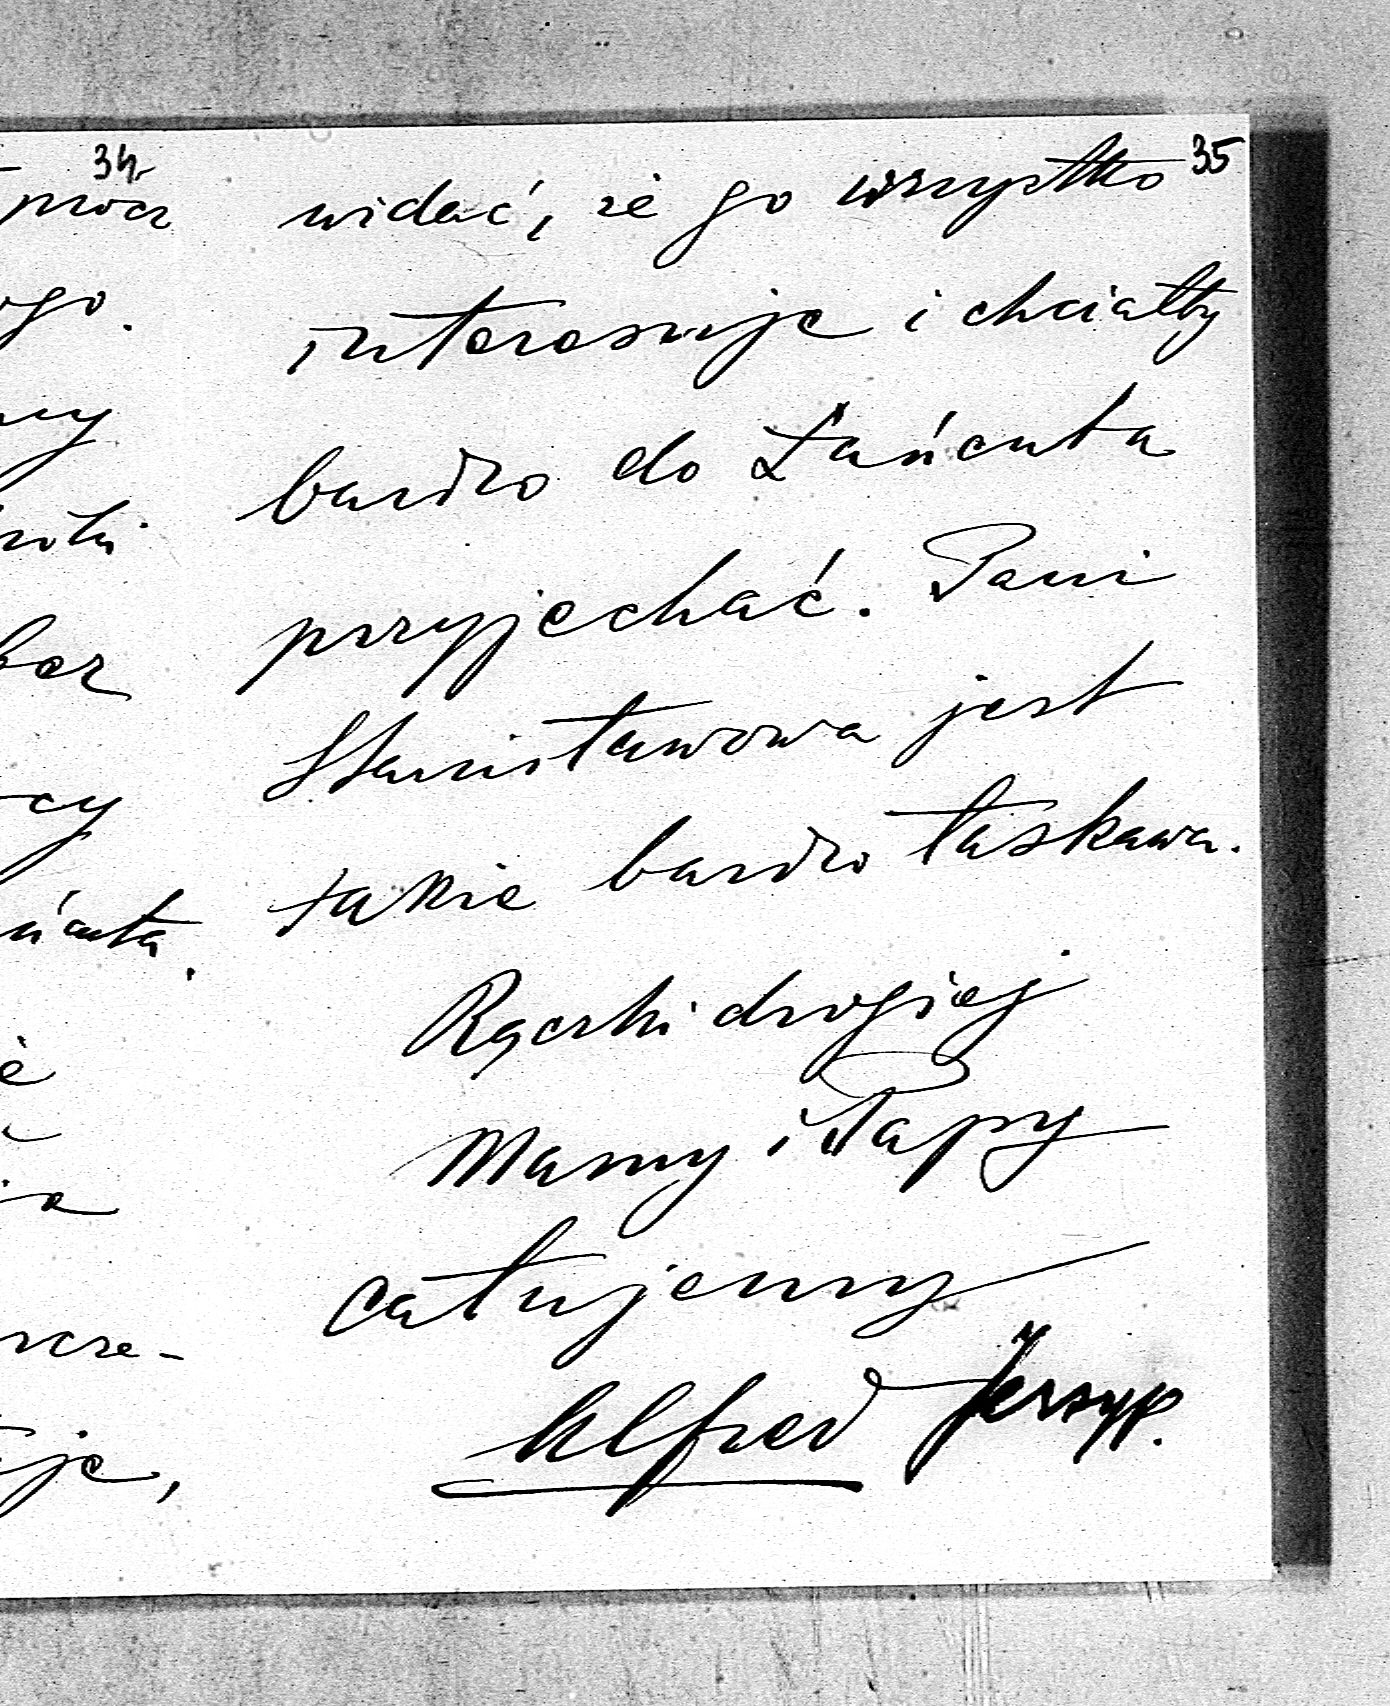 34
prócz
ogo.
bez
cy
35
widać, że go wszystko
interesuje i chciałby
bardzo do Łańcuta
przyjechać. Pani
Stanisławowa jest
także bardzo łaskawa.
Rączki drogiej
Mamy i Papy
całujemy
Alfred Jerzyp.